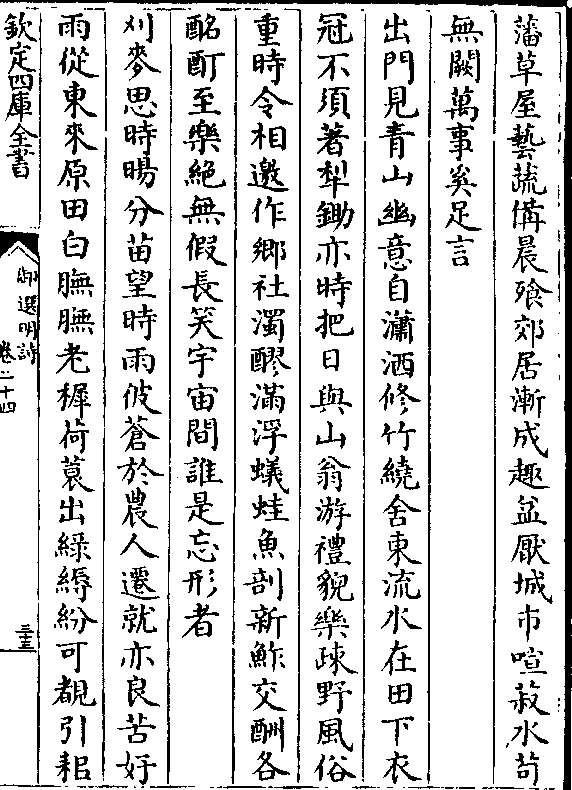 藩草屋藝蔬備晨飱郊居漸成趣益厭城市喧菽水苟
無闕萬事奚足言
出門見青山幽意自瀟洒修竹繞舍東流水在田下衣
冠不須著犁鋤亦時把日與山翁游禮貌樂疎野風俗
重時令相邀作鄉社濁醪滿浮蟻蛙魚剖新鮓交酬各
酩酊至樂絶無假長笑宇宙間誰是忘形者
刈麥思時暘分苗望時雨彼蒼於農人遷就亦良苦好
雨從東來原田白膴膴老穉荷蓑出綠縟紛可覩引耜
欽定四庫全書
御選明詩
卷二十四
三十三